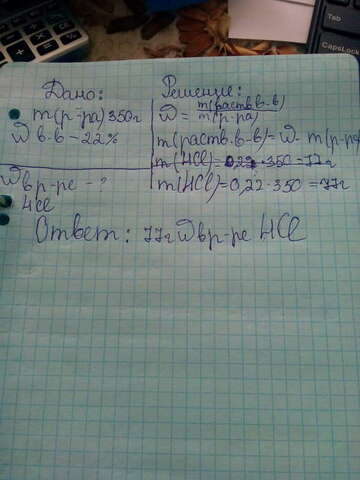 Tab
CapsLock
Дано:
m(р-ра) 350г
W в-в = 22%
W в р-ре - ?
HCl
Решение:
W = m(раств. в-в) / m(р-ра)
m(раств. в-в) = W · m(р-ра)
m(HCl) = 0,22 · 350 = 77г
m(HCl) = 0,22 · 350 = 77г
Ответ: 77г W в р-ре HCl